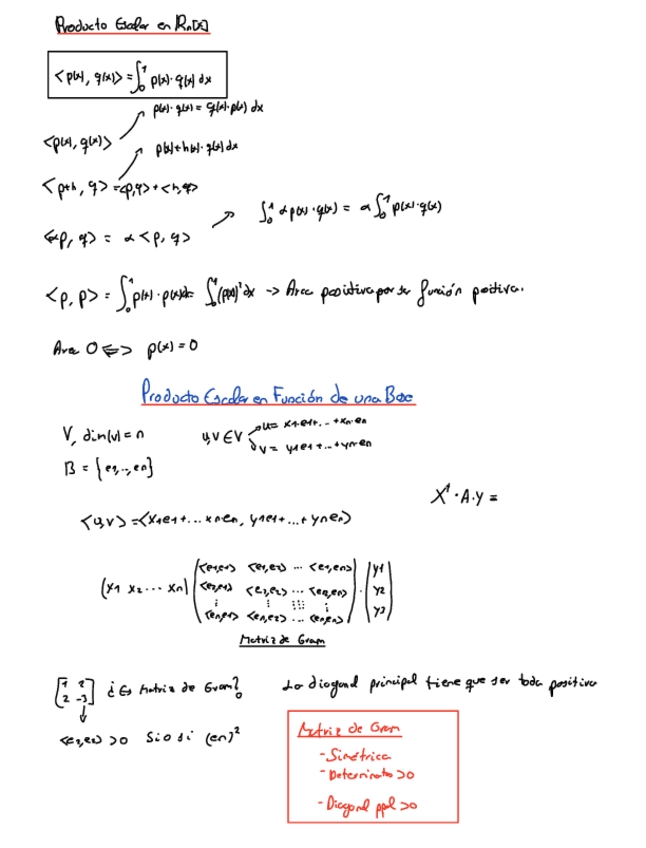 Producto Escalar en Rn[x]
<p(x), q(x)> = ∫₀¹ p(x)·q(x) dx
p(x)·q(x) = q(x)·p(x) dx
<p(x), q(x)>
p(x)+h(x)·q(x) dx
<p+h, q> = <p,q> + <h,q>
∫₀¹ αp(x)·q(x) = α∫₀¹ p(x)·q(x)
<αp, q> = α <p, q>
<p, p> = ∫₀¹ p(x)·p(x)dx = ∫₀¹ (p(x))² dx -> Area positiva por ser función positiva.
Area 0 <=> p(x) = 0
Producto Escalar en Función de una Base
V, dim(v) = n u,v ∈ V u = x1e1+...+xn·en
v = y1e1+...+yn·en
B = {e1,..,en}
X^t · A · y =
<u,v> = <x1e1+...xnen, y1e1+...+ynen>
(x1 x2 ... xn) (<e1,e1> <e1,e2> ... <e1,en>) · (y1)
<e2,e1> <e2,e2> ... <e2,en> y2
<en,e1> <en,e2> ... <en,en> y3
Matriz de Gram
[1 2 ¿Es Matriz de Gram? La diagonal principal tiene que ser toda positiva
2 -3]
<e2,e2> >0 Sio si (en)²
Matriz de Gram
- Simétrica
- Determinate >0
- Diagonal ppal >0